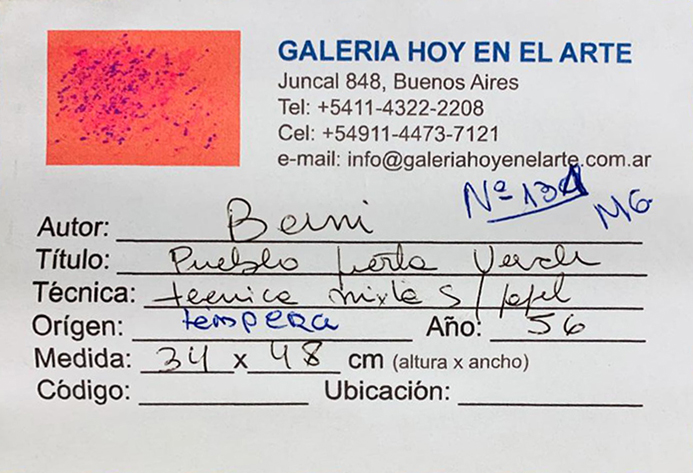 GALERIA HOY EN EL ARTE
Juncal 848, Buenos Aires
Tel: +5411-4322-2208
Cel: +54911-4473-7121
e-mail: info@galeriahoyenelarte.com.ar
Nº 134 MG
Autor: Berni
Título: Pueblo puerta Verde
Técnica: tecnica mixta s/papel
Orígen: tempera Año: 56
Medida: 34 x 48 cm (altura x ancho)
Código: Ubicación: